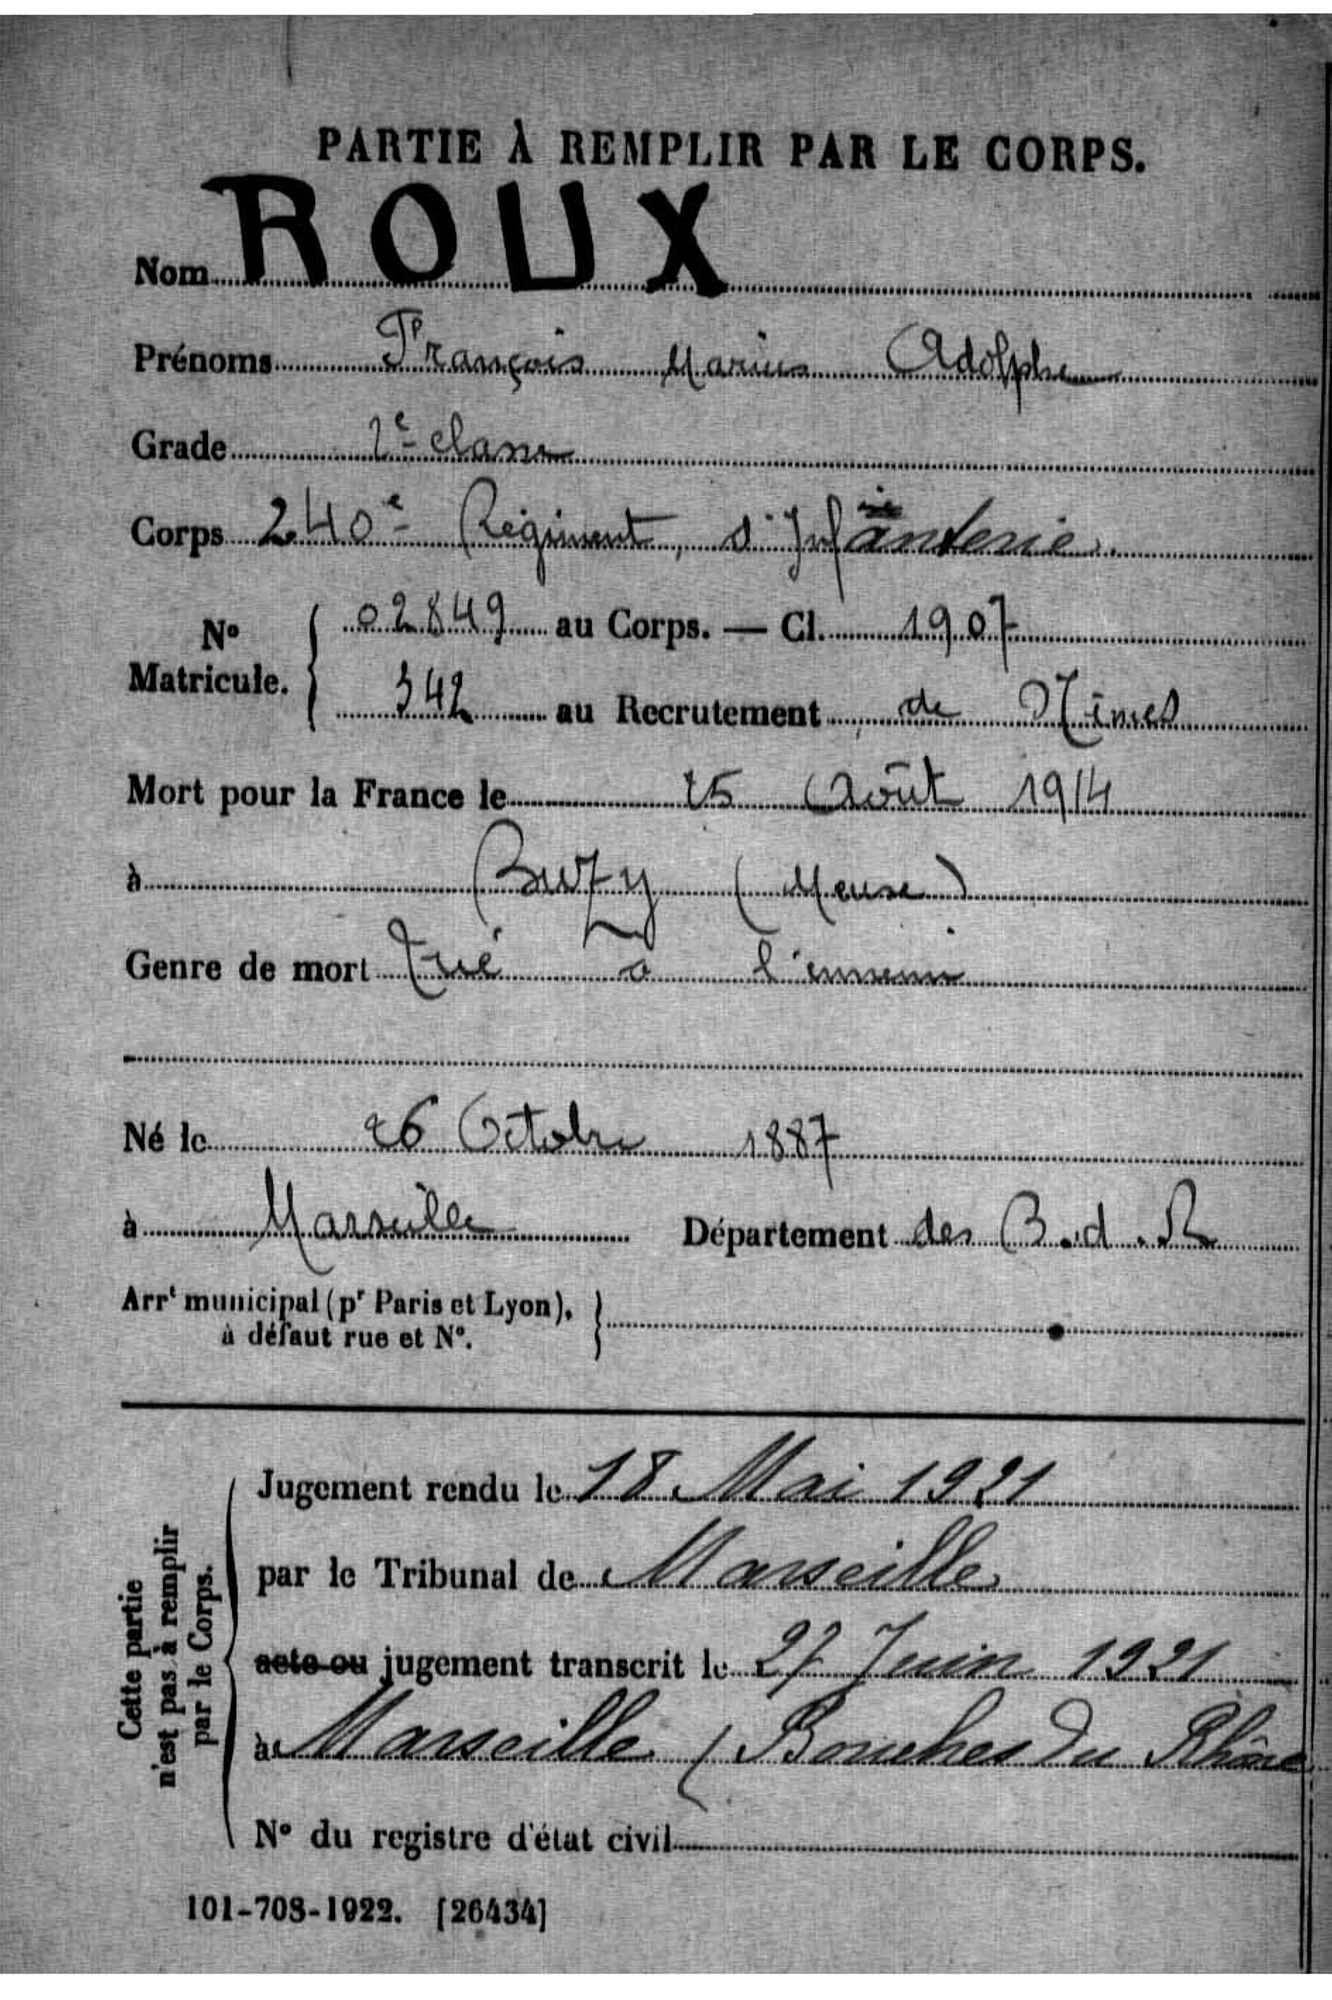 PARTIE À REMPLIR PAR LE CORPS.
Nom ROUX
Prénoms François Marius Adolphe
Grade 2e classe
Corps 240e Régiment d'Infanterie
No Matricule. 02849 au Corps. — Cl. 1907
342 au Recrutement de Nîmes
Mort pour la France le 25 Août 1914
à Buzy (Meuse)
Genre de mort Tué a l'ennemi
Né le 26 Octobre 1887
à Marseille Département des B.d.R
Arrt municipal (pr Paris et Lyon),
à défaut rue et No.
Cette partie
n'est pas à remplir
par le Corps.
Jugement rendu le 18 Mai 1921
par le Tribunal de Marseille
acte ou jugement transcrit le 27 Juin 1921
à Marseille (Bouches du Rhône
No du registre d'état civil
101-708-1922. [26434]